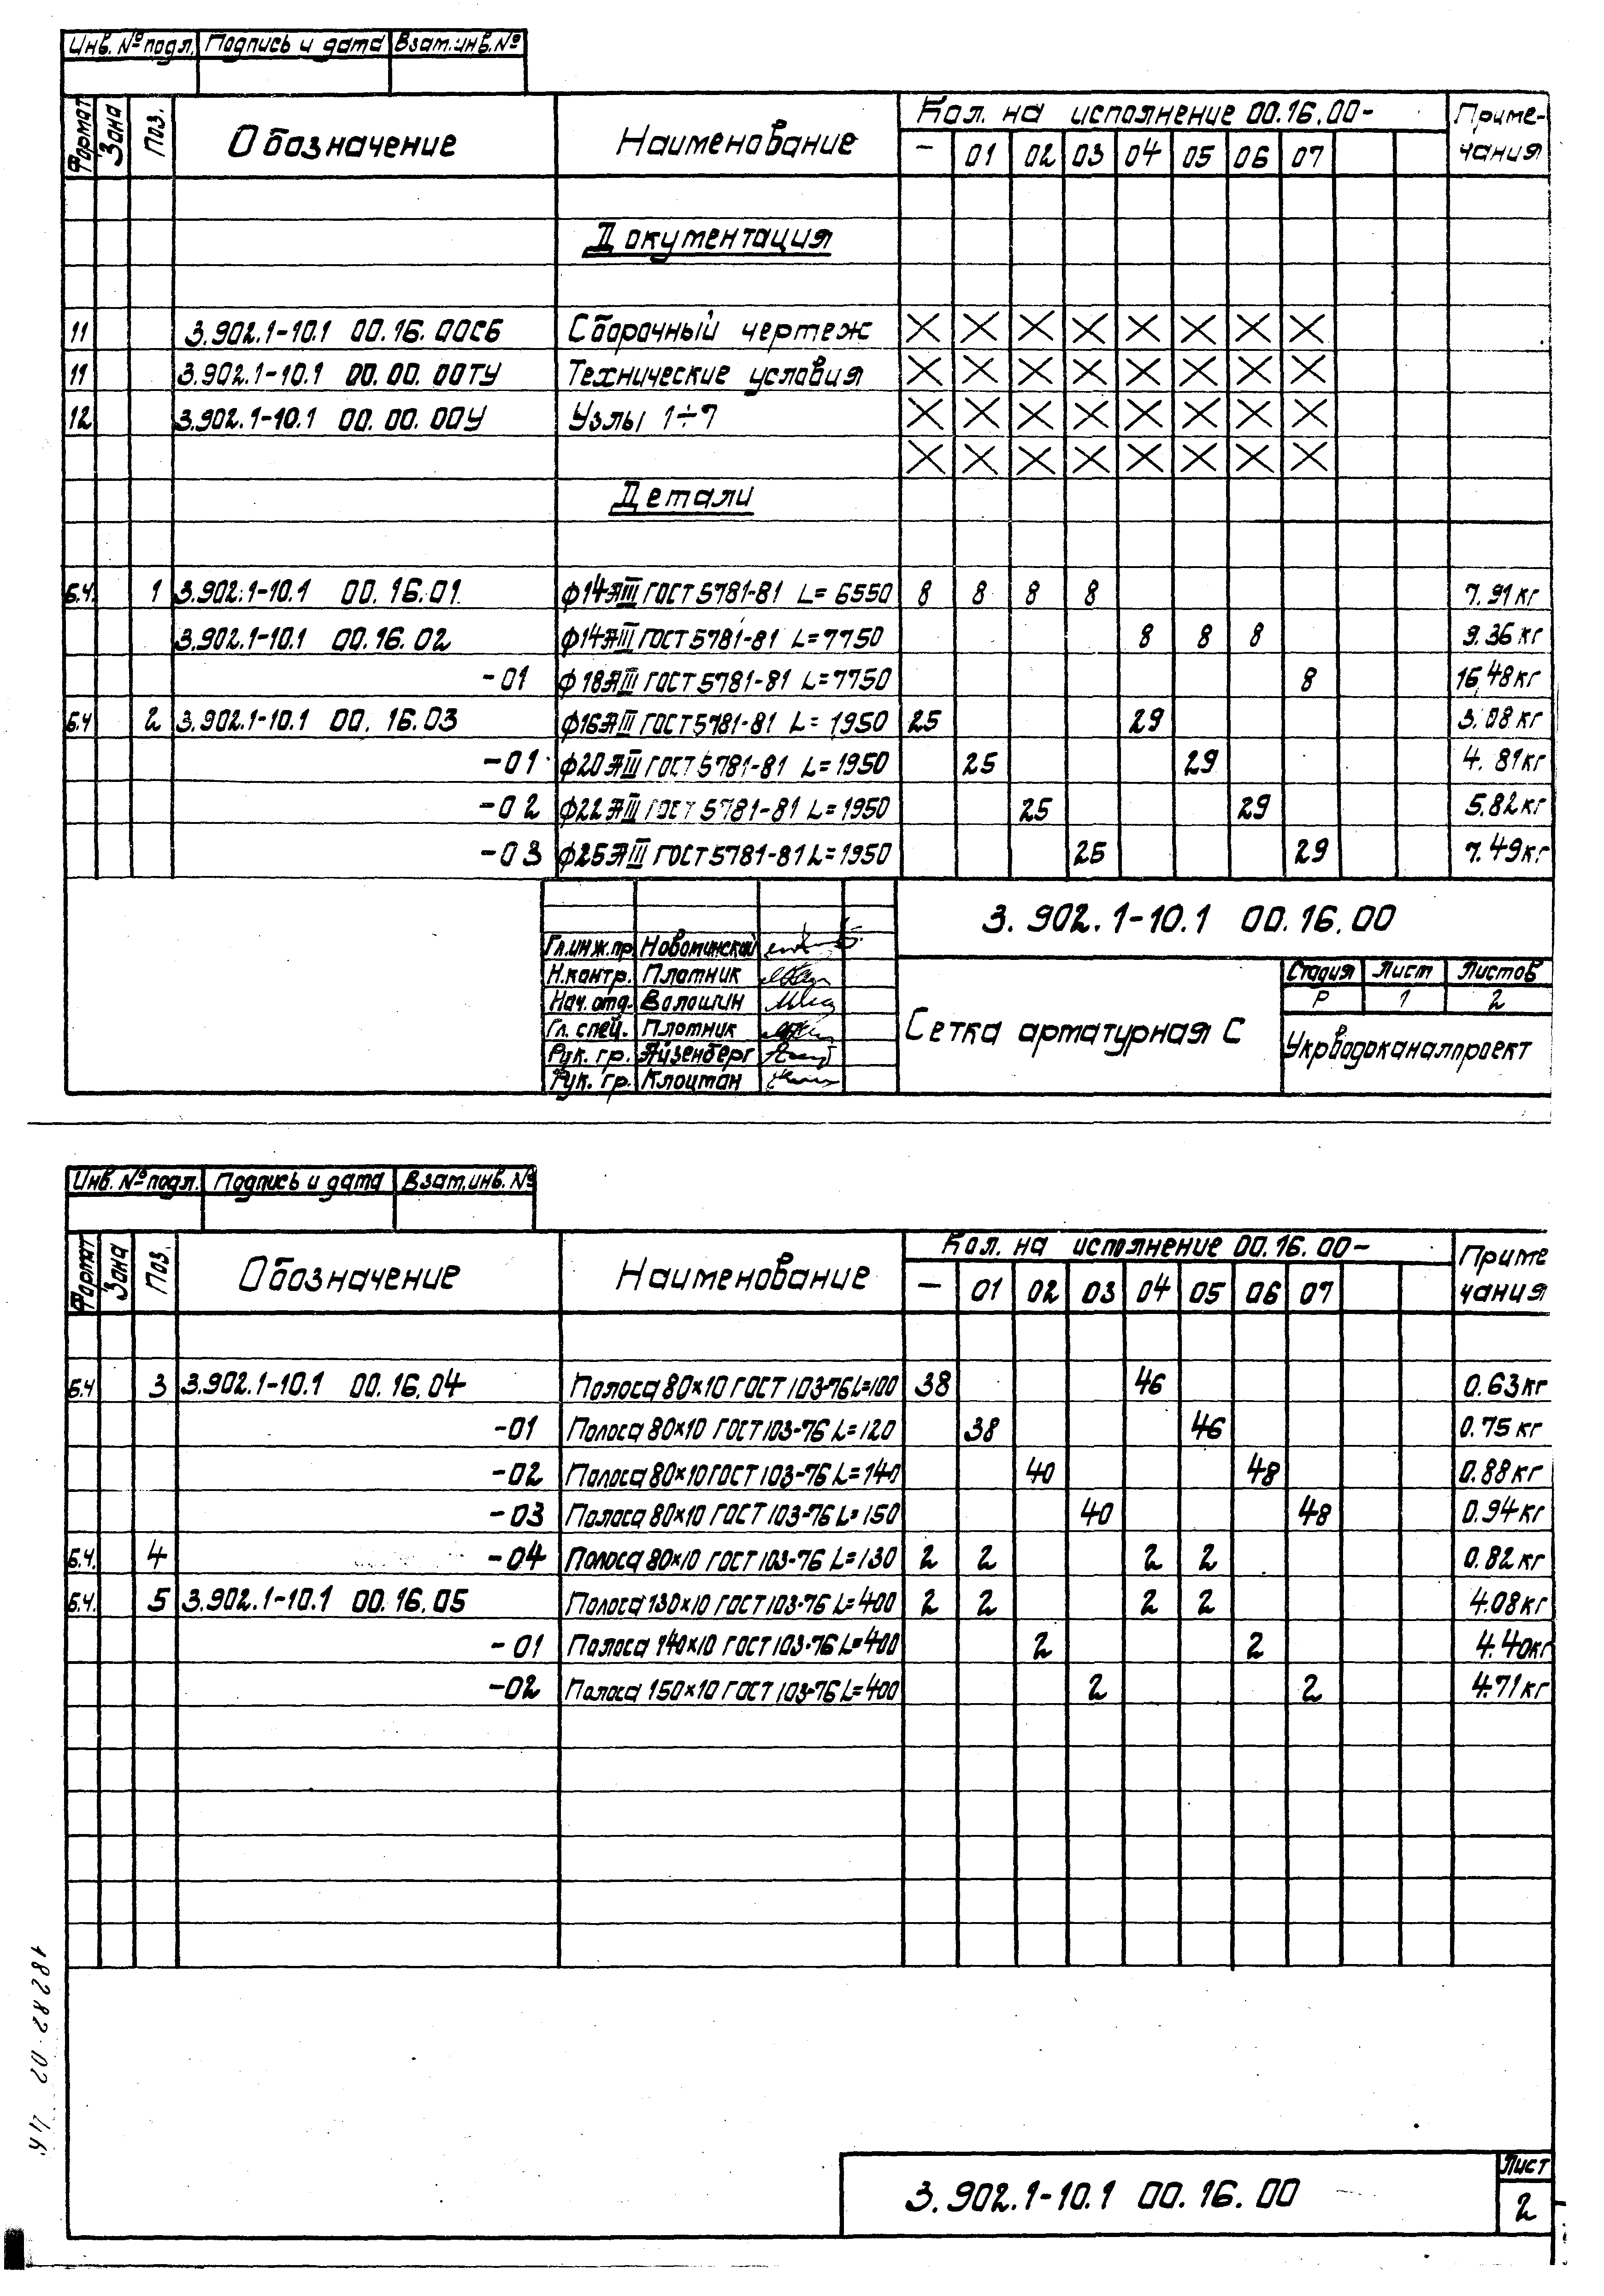 Инв. № подл. Подпись и дата Взам. инв. №
Формат Зона Поз. Обозначение Наименование Кол. на исполнение 00.16.00- Приме-
чания
- 01 02 03 04 05 06 07
Документация
11 3.902.1-10.1 00.16.00СБ Сборочный чертеж X X X X X X X X
11 3.902.1-10.1 00.00.00ТУ Технические условия X X X X X X X X
12 3.902.1-10.1 00.00.00У Узлы 1÷7 X X X X X X X X
X X X X X X X X
Детали
Б.Ч. 1 3.902.1-10.1 00.16.01 ф14АIII ГОСТ 5781-81 L=6550 8 8 8 8 7.91кг
3.902.1-10.1 00.16.02 ф14АIII ГОСТ 5781-81 L=7750 8 8 8 9.36 кг
-01 ф18АIII ГОСТ 5781-81 L=7750 8 16,48кг
Б.Ч 2 3.902.1-10.1 00.16.03 ф16АIII ГОСТ 5781-81 L=1950 25 29 3.08 кг
-01 ф20АIII ГОСТ 5781-81 L=1950 25 29 4.81кг
-02 ф22АIII ГОСТ 5781-81 L=1950 25 29 5.82кг
-03 ф25АIII ГОСТ 5781-81 L=1950 25 29 7.49кг
3.902.1-10.1 00.16.00
Гл.инж.пр. Новоминский
Н.контр. Плотник
Нач. отд. Волошин
Гл. спец. Плотник
Рук. гр. Айзенберг
Рук. гр. Клоцман
Сетка арматурная С
Стадия Лист Листов
Р 1 2
Укрводоканалпроект
Инв. № подл. Подпись и дата Взам. инв. №
Формат Зона Поз. Обозначение Наименование Кол. на исполнение 00.16.00- Приме
чания
- 01 02 03 04 05 06 07
Б.Ч 3 3.902.1-10.1 00.16.04 Полоса 80×10 ГОСТ 103-76 L=100 38 46 0.63кг
-01 Полоса 80×10 ГОСТ 103-76 L=120 38 46 0.75 кг
-02 Полоса 80×10 ГОСТ 103-76 L=140 40 48 0.88кг
-03 Полоса 80×10 ГОСТ 103-76 L=150 40 48 0.94кг
Б.Ч. 4 -04 Полоса 80×10 ГОСТ 103-76 L=130 2 2 2 2 0.82 кг
Б.Ч. 5 3.902.1-10.1 00.16.05 Полоса 130×10 ГОСТ 103-76 L=400 2 2 2 2 4.08кг
-01 Полоса 140×10 ГОСТ 103-76 L=400 2 2 4.40кг
-02 Полоса 150×10 ГОСТ 103-76 L=400 2 2 4.71кг
18282-02 46
3.902.1-10.1 00.16.00
Лист
2